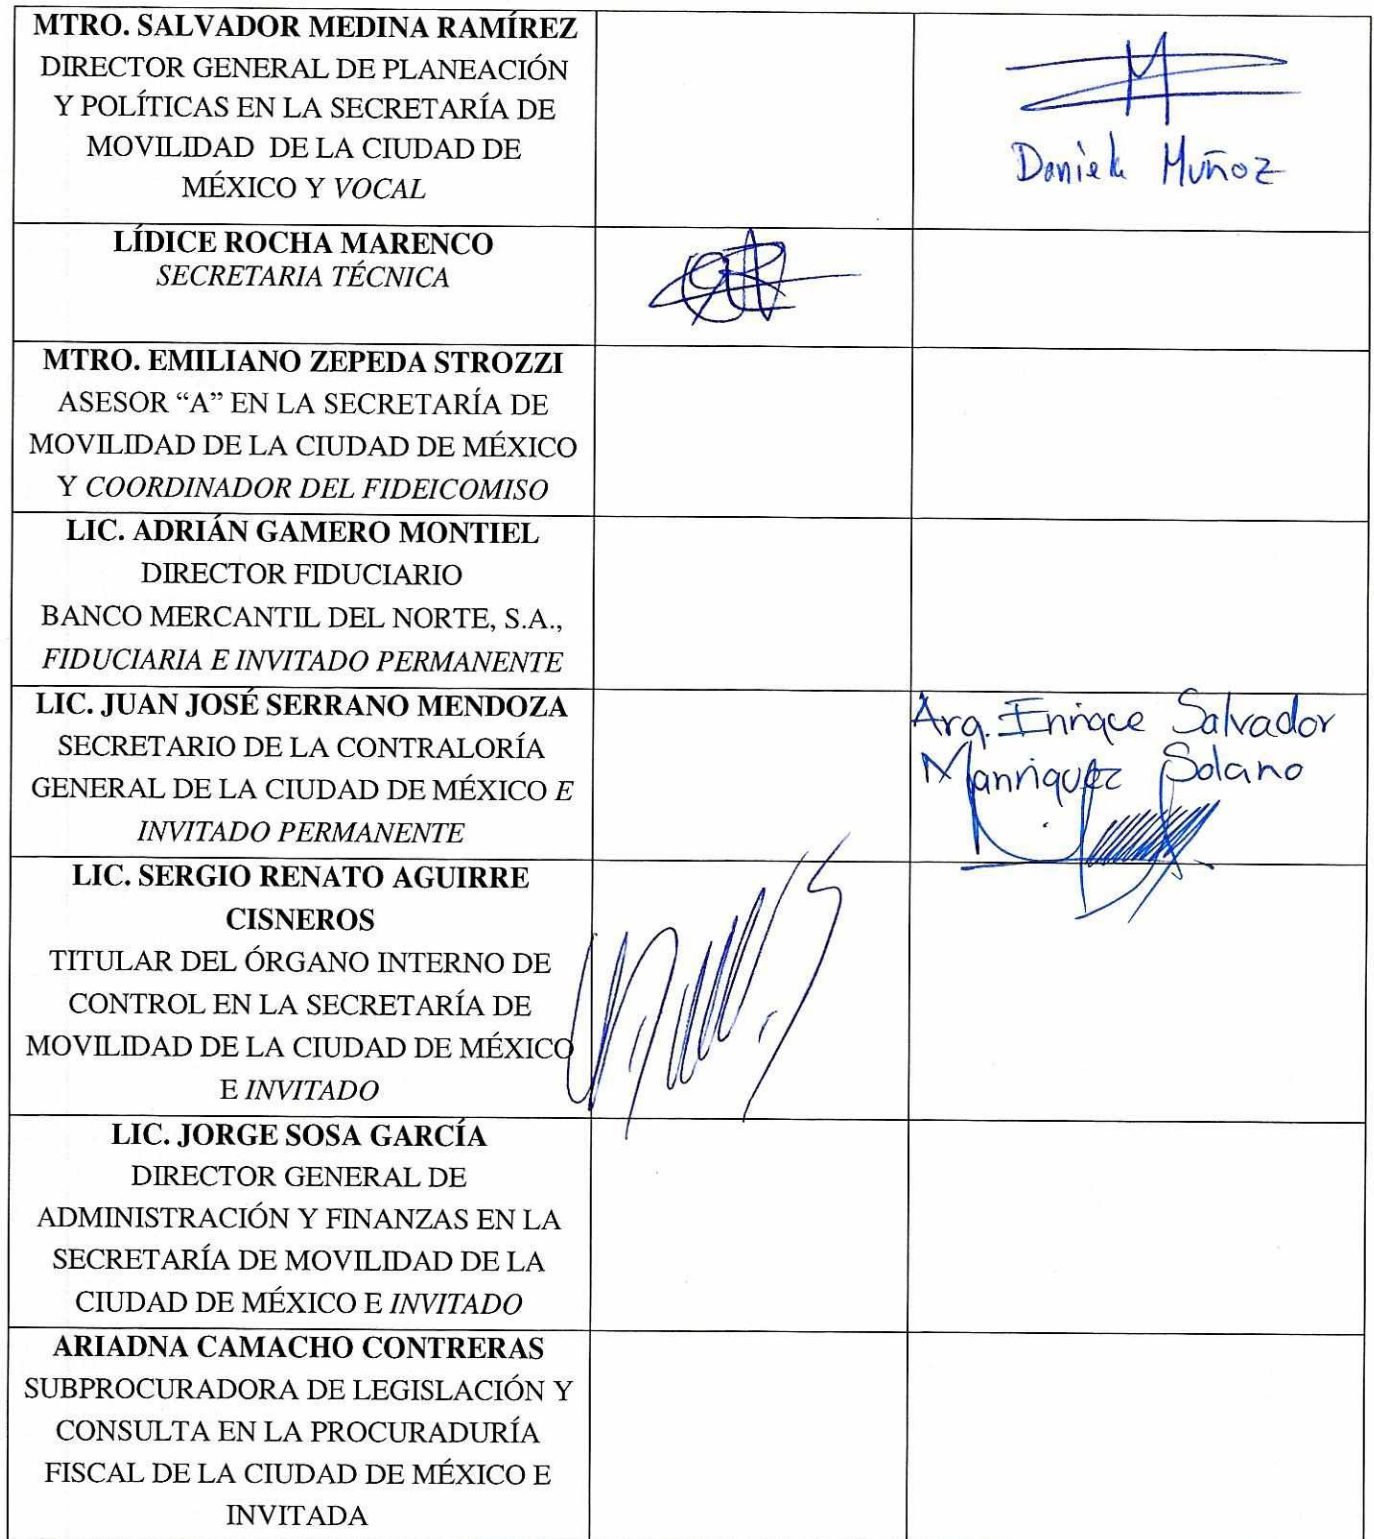 MTRO. SALVADOR MEDINA RAMÍREZ
DIRECTOR GENERAL DE PLANEACIÓN
Y POLÍTICAS EN LA SECRETARÍA DE
MOVILIDAD DE LA CIUDAD DE
MÉXICO Y VOCAL
Daniela Muñoz
LÍDICE ROCHA MARENCO
SECRETARIA TÉCNICA
MTRO. EMILIANO ZEPEDA STROZZI
ASESOR “A” EN LA SECRETARÍA DE
MOVILIDAD DE LA CIUDAD DE MÉXICO
Y COORDINADOR DEL FIDEICOMISO
LIC. ADRIÁN GAMERO MONTIEL
DIRECTOR FIDUCIARIO
BANCO MERCANTIL DEL NORTE, S.A.,
FIDUCIARIA E INVITADO PERMANENTE
LIC. JUAN JOSÉ SERRANO MENDOZA
SECRETARIO DE LA CONTRALORÍA
GENERAL DE LA CIUDAD DE MÉXICO E
INVITADO PERMANENTE
Arq. Enrique Salvador
Manriquez Solano
LIC. SERGIO RENATO AGUIRRE
CISNEROS
TITULAR DEL ÓRGANO INTERNO DE
CONTROL EN LA SECRETARÍA DE
MOVILIDAD DE LA CIUDAD DE MÉXICO
E INVITADO
LIC. JORGE SOSA GARCÍA
DIRECTOR GENERAL DE
ADMINISTRACIÓN Y FINANZAS EN LA
SECRETARÍA DE MOVILIDAD DE LA
CIUDAD DE MÉXICO E INVITADO
ARIADNA CAMACHO CONTRERAS
SUBPROCURADORA DE LEGISLACIÓN Y
CONSULTA EN LA PROCURADURÍA
FISCAL DE LA CIUDAD DE MÉXICO E
INVITADA